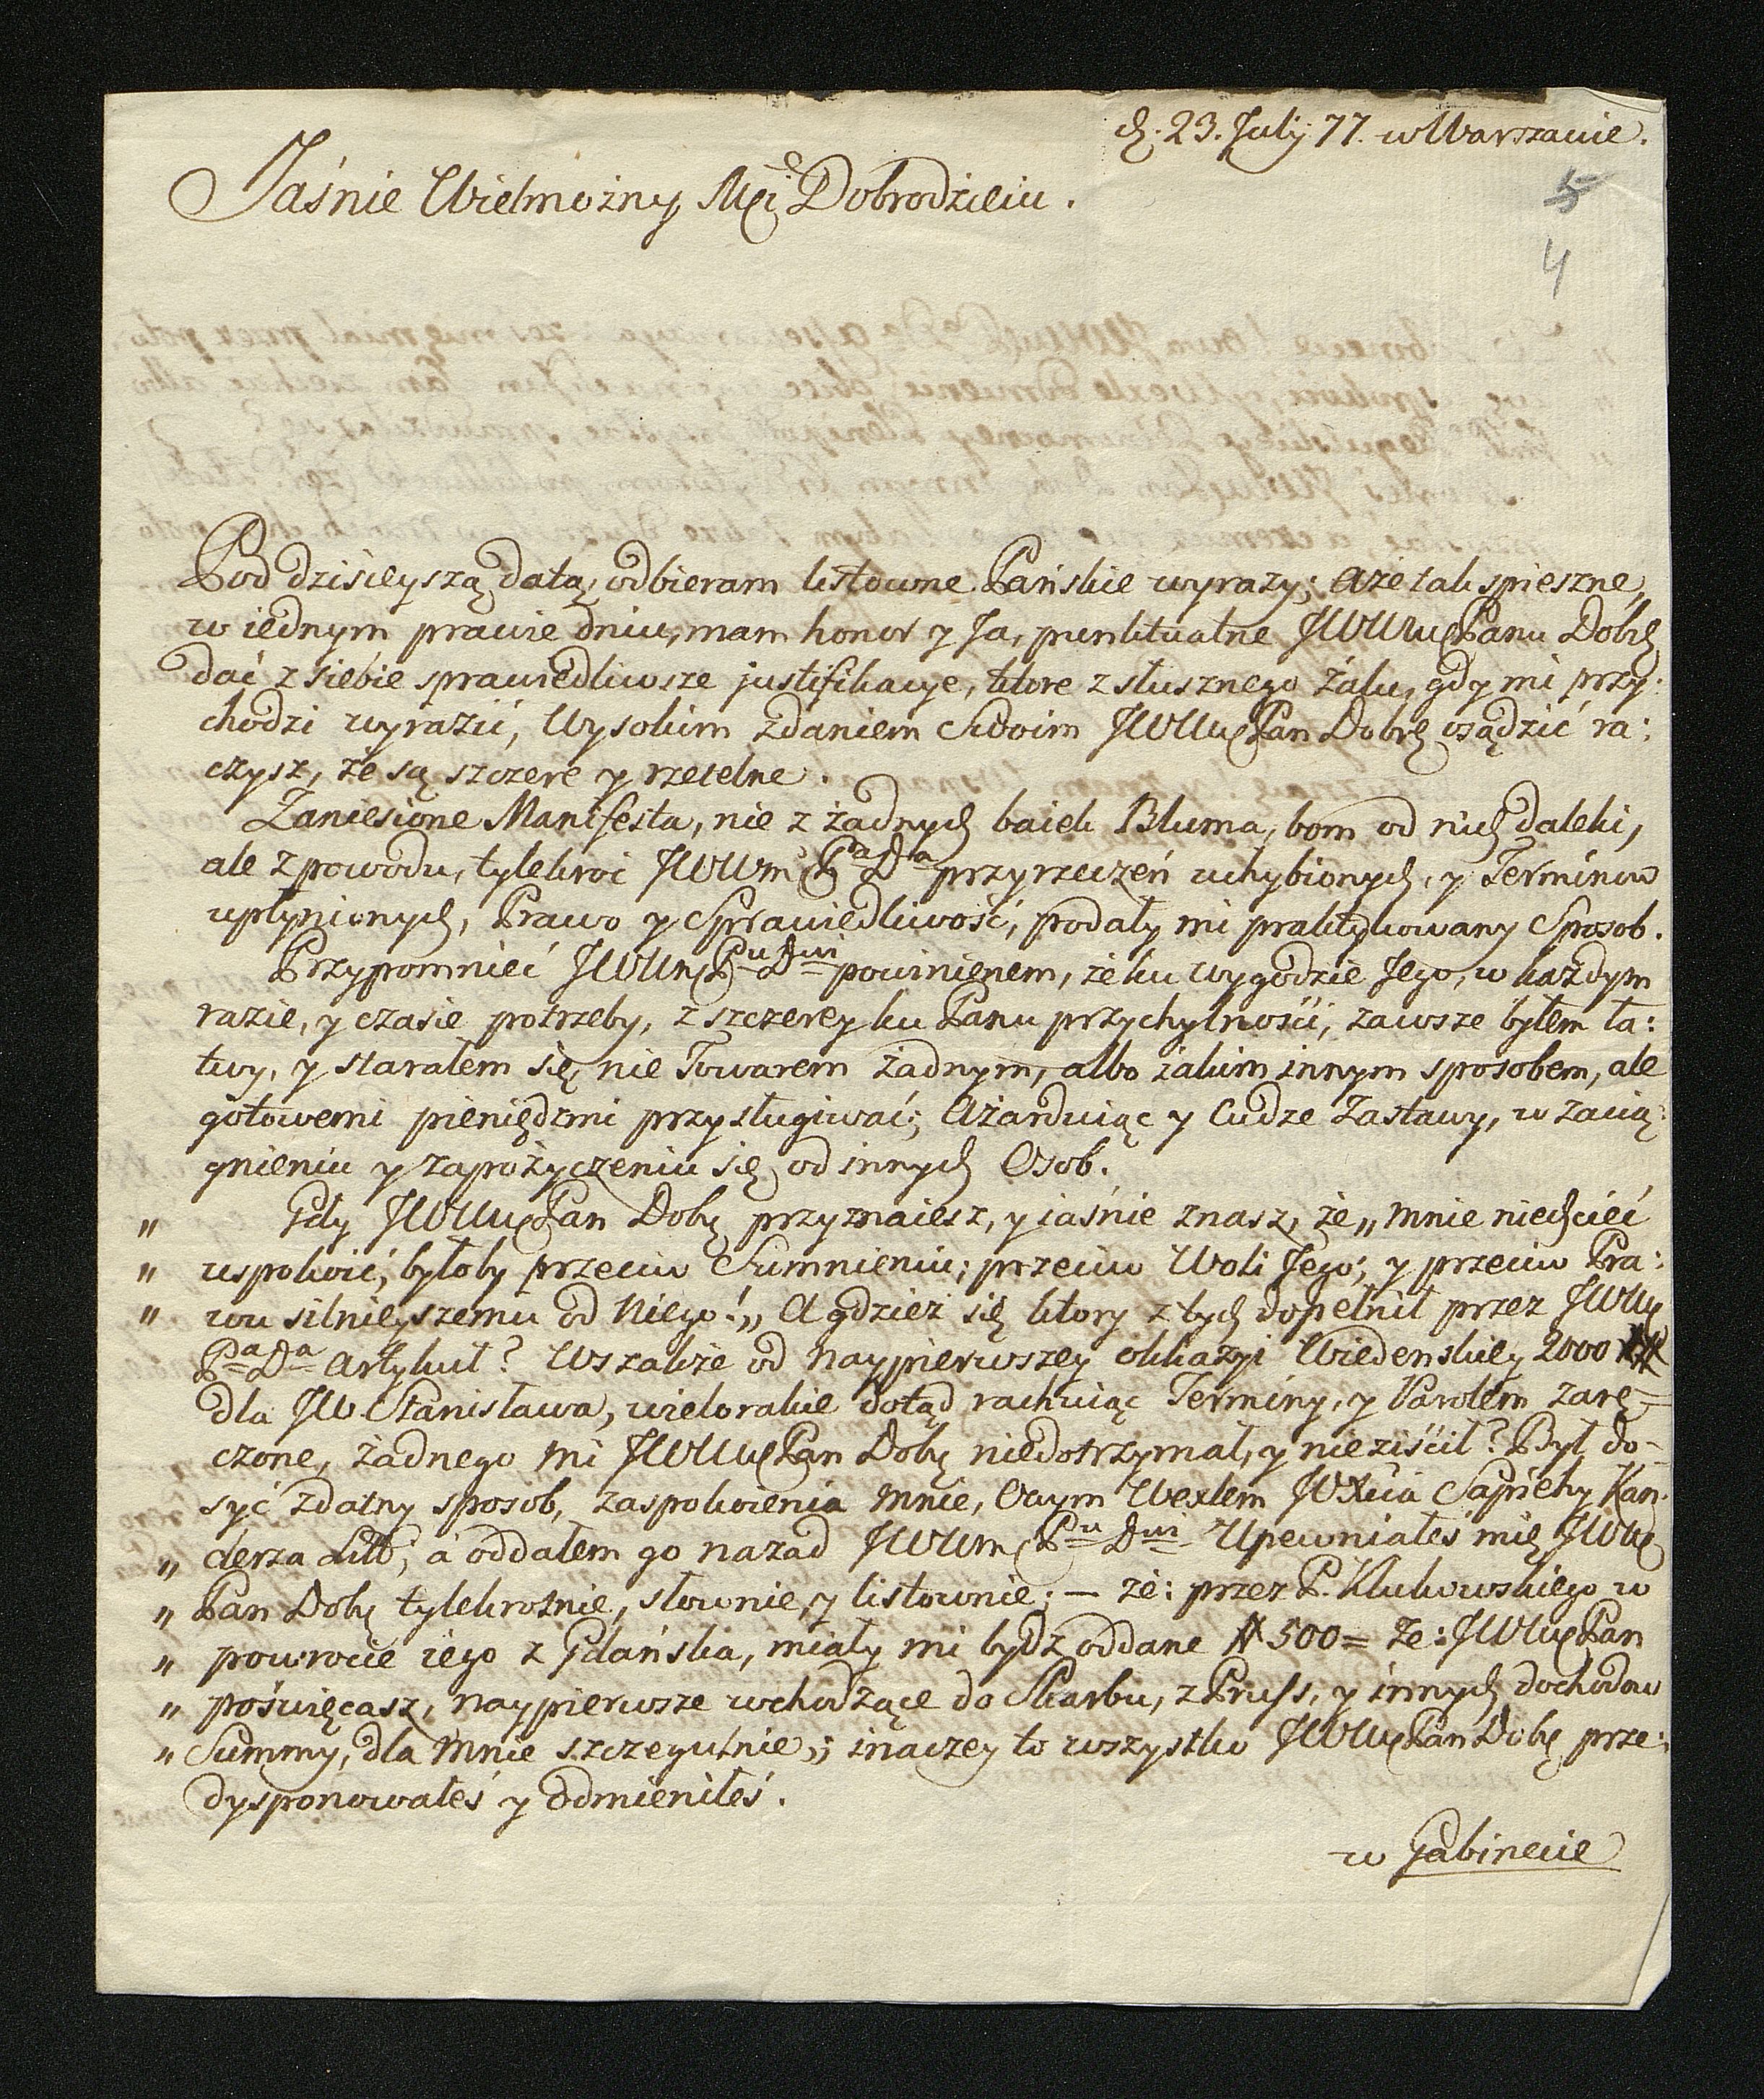 d. 23. Julij 77. w Warszawie.
5
4
Jaśnie Wielmożny Mci Dobrodzieiu.
Pod dzisieyszą datą, odbieram listowne Pańskie wyrazy; A że tak spieszne,
w iednym prawie dniu, mam honor y Ja, punktualne JWWM Panu Dobrę
dać z siebie sprawiedliwsze justifikacye, ktore z słusznego żalu, gdy mi przy:
chodzi wyrazić, Wysokim zdaniem Swoim JWWM Pan Dobrę osądzić ra:
czysz, że są szczere y rzetelne.
Zaniesione Manifesta, nie z żadnych baiek Bluma, bom od nich daleki,
ale z powodu, tylekroć JWWM Pa Da przyrzeczeń uchybionych, y Terminow
upłynionych, Prawo y Sprawiedliwość, podały mi praktykowany Sposob.
Przypomnieć JWWM Pu Dwi powinienem, że ku wygodzie Jego, w każdym
razie, y czasie potrzeby, z szczerey ku Panu przychylności, zawsze byłem ła:
twy, y starałem się, nie Towarem żadnym, albo iakim innym sposobem, ale
gotowemi pieniędzmi przysługiwać; Ażarduiąc y Cudze Zastawy, w zacią:
gnieniu y zapożyczeniu się, od innych Osob.
" Gdy JWWM Pan Dobę przyznaiesz, y iaśnie znasz, że „ mnie niechcieć
" uspokoić, byłoby przeciw Sumnieniu; przeciw Woli Jego; y przeciw Pra:
" wu silnieyszemu od Niego! „ A gdzież się ktory z tych dopełnił przez JWWM
Pa Da Artykuł? Wszakże od naypierwszey okkazyi Wiedenskiey 2000 ##
dla JW. Stanisława, wielorakie dotąd rachuiąc Terminy, y Parolem zarę=
czone, żadnego mi JWWM Pan Dobę niedotrzymał, y nieziścił? Był do-
syć zdatny sposob, zaspokoienia mnie, Owym Wexlem JWXcia Sapiehy Kan:
" clerza Litt; á oddałem go nazad JWWM Pu Dwi. Upewniałeś mię JWWM
" Pan Dobę tylekrotnie, słownie, y listownie; — że: przez P. Klukowskiego w
" powrocie iego z Gdańska, miały mi bydz oddane # 500= Że: JWWM Pan
" poświęcasz, naypierwsze wchodzące do Skarbu, z Pruss, y innych dochodow
" Summy, dla Mnie szczegulnie; inaczey to wszystko JWWM Pan Dobę prze:
dysponowałeś y Odmieniłeś.
w Gabinecie